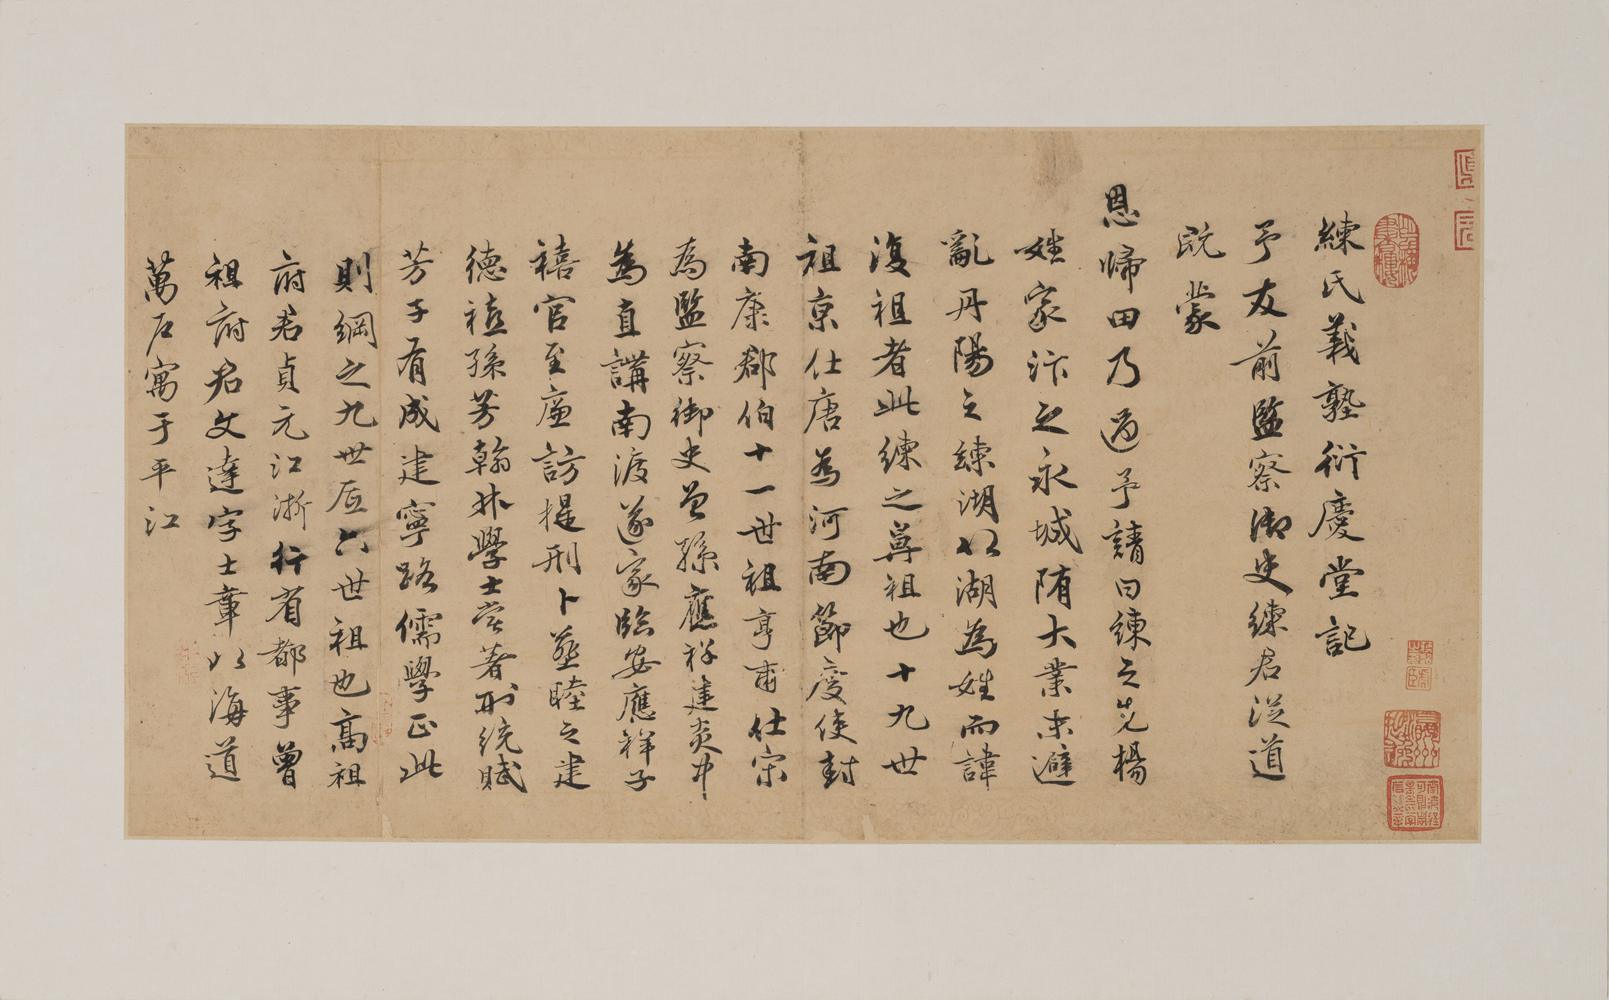 練氏義塾衍慶堂記
予友前監察御史練君從道
既蒙
恩歸田乃過予請曰練之先楊
姓家汴之永城隋大業末避
亂丹陽之練湖以湖為姓而諱
復祖者此練之尊祖也十九世
祖京仕唐為河南節度使封
南康郡伯十一世祖亨甫仕宋
為監察御史曾孫應祥建炎中
為直講南渡遂家臨安應祥子
禧官至廉訪提刑卜葬睦之建
德禧孫芳翰林學士嘗著刑統賦
芳子有成建寧路儒學正此
則綱之九世至六世祖也高祖
府君貞元江浙行省都事曾
祖府君文達字士章以海道
萬戶寓于平江